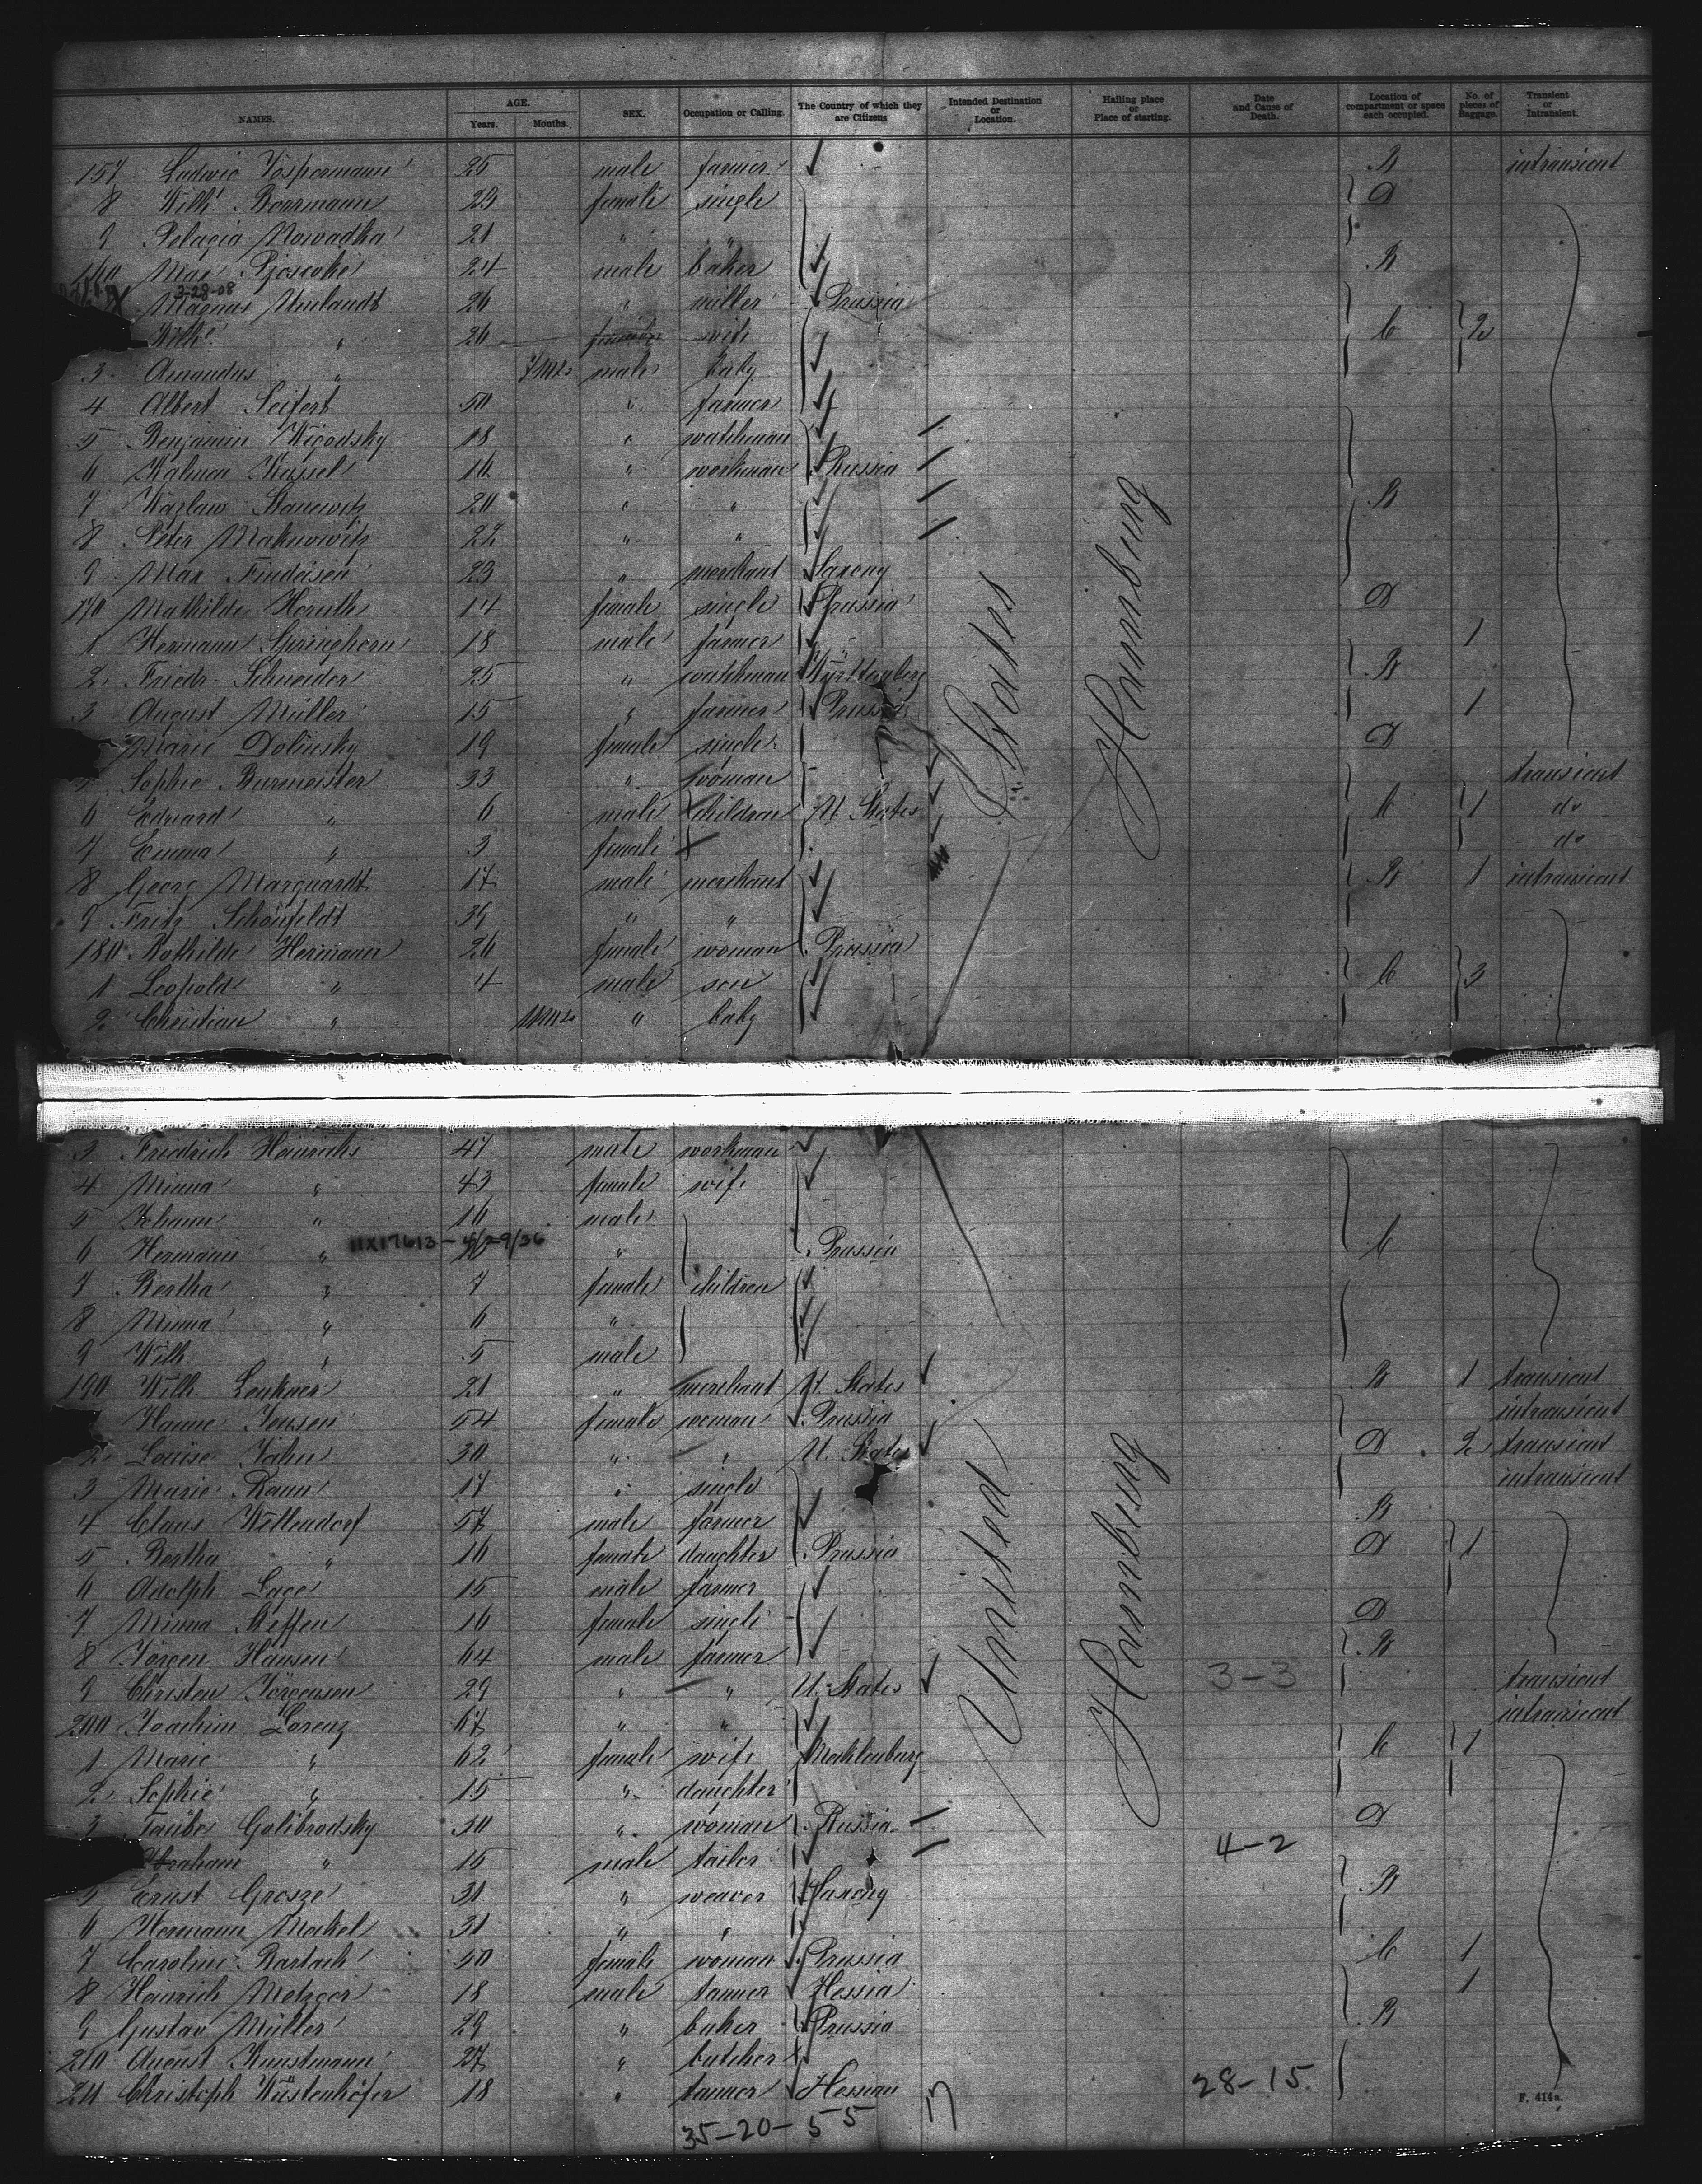 NAMES. AGE. Years. Months. SEX. Occupation or Calling. The Country of which they are Citizens Intended Destination or Location. Hailing place or Place of starting. Date and Cause of Death. Location of compartment or space each occupied. No. of pieces of Baggage. Transient or Intransient.
157 Ludwig 25 male farmer B intransient
8 Wilh. Boormann 29 female single D
9 Pelagia Nowadka 21 " "
160 Max 24 male baker B
3-28-08
Magnus Umlandt 26 " miller Prussia
Wilh. " 26 female wife C 2
3 Amandus " 7 Mts male baby
4 Albert Seifert 50 " farmer
5 Benjamin Wigodsky 18 " watchman
6 Kalman Kassel 16 " workman Russia
7 Wazlaw Stanewitz 20 " " B
8 Peter Makuowitz 22 " "
9 Max Findeisen 29 " merchant Saxony
170 Mathilde 14 female single Prussia D
1 Hermann Springhorn 18 male farmer 1
2 Friedr. Schneider 25 " watchman Württemberg B
3 August Müller 15 " farmer Prussia 1
Marie Dolinsky 19 female single D
5 Sophie Burmeister 33 " woman transient
6 Eduard " 6 male children U. States C 1 do
7 Emma " 3 female do
8 Georg Marquardt 17 male merchant B 1 intransient
9 Fritz Schönfeldt 39 " "
180 Hermann 26 female woman Prussia
1 Leopold " 4 male son C 3
2 Christian " 11 Mts " baby
States
Hamburg
3 Friedrich Heinrichs 47 male workman
4 Minna " 43 female wife
5 Johann " 16 male
6 Hermann " 11X17613-4/29/36 " Prussia C
7 Bertha " 7 female children
8 Minna " 6 "
9 Wilh. " 5 male
190 Wilh. Lenkner 21 " merchant U. States B 1 transient
Hanne Jensen 54 female woman Prussia intransient
2 Louise Jahn 30 " " U. States D 2 transient
3 Marie 17 " single intransient
4 Claus Wellendorf 57 male farmer B
5 Bertha " 16 female daughter Prussia D 1
6 Adolph Lage 15 male farmer
7 Minna Steffen 16 female single D
8 Jörgen Hansen 64 male farmer B
9 Christen Jörgensen 29 " " U. States 3-3 transient
200 Joachim Lorenz 67 " " intransient
1 Marie " 62 female wife Mecklenburg C 1
2 Sophie " 15 " daughter
3 Taube Golibrodsky 30 " woman Russia D
Abraham " 15 male tailor 4-2
5 Ernst Grosze 31 " weaver Saxony B
6 Hermann Merkel 31 " "
7 Caroline Bartsch 50 female woman Prussia C 1
8 Heinrich Metzger 18 male tanner Hessia 1
9 Gustav Müller 29 " baker Prussia B
210 August Kunstmann 27 " butcher
211 Christoph Wüstenhöfer 18 " tanner Hessian 28-15
United
Hamburg
F. 414a.
35-20-55 17